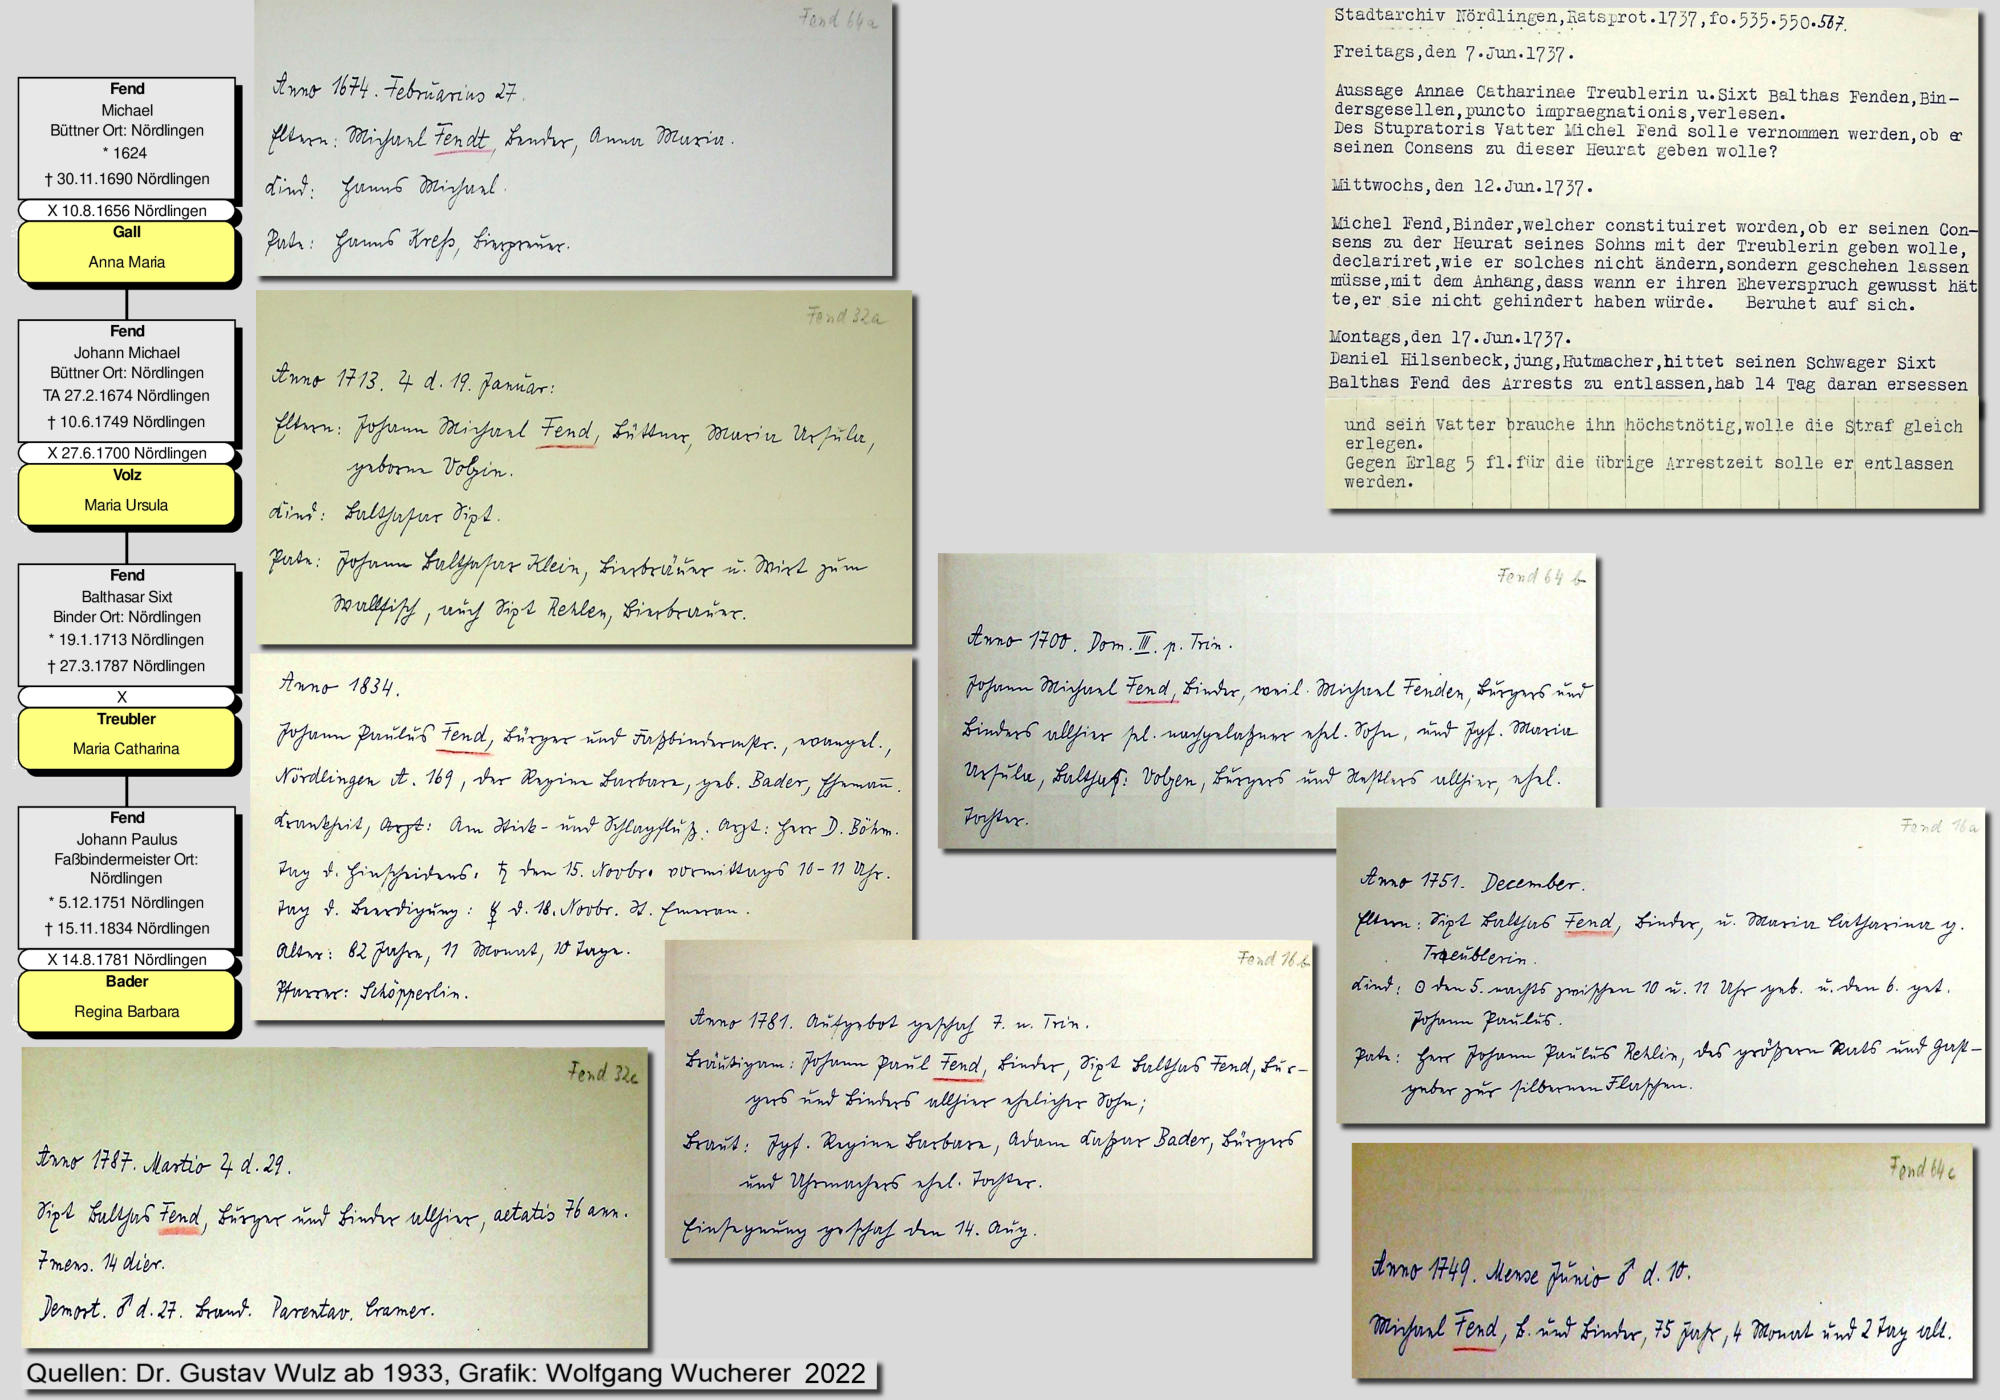 Fend
Michael
Büttner Ort: Nördlingen
* 1624
† 30.11.1690 Nördlingen
X 10.8.1656 Nördlingen
Gall
Anna Maria
Fend
Johann Michael
Büttner Ort: Nördlingen
TA 27.2.1674 Nördlingen
† 10.6.1749 Nördlingen
X 27.6.1700 Nördlingen
Volz
Maria Ursula
Fend
Balthasar Sixt
Binder Ort: Nördlingen
* 19.1.1713 Nördlingen
† 27.3.1787 Nördlingen
X
Treubler
Maria Catharina
Fend
Johann Paulus
Faßbindermeister Ort:
Nördlingen
* 5.12.1751 Nördlingen
† 15.11.1834 Nördlingen
X 14.8.1781 Nördlingen
Bader
Regina Barbara
Fend 64a
Anno 1674. Februarius 27.
Eltern: Michael Fendt, Bender, Anna Maria.
Kind: Hanns Michael.
Pate: Hanns Kreß, Bierpreuer.
Fend 32a
Anno 1713. ♃ d. 19. Januar:
Eltern: Johann Michael Fend, Büttner, Maria Ursula,
geborne Volzin.
Kind: Balthasar Sixt.
Pate: Johann Balthasar Klein, Bierbräuer u. Wirt zum
Wallfisch, auch Sixt Rehlen, Bierbrauer.
Anno 1834.
Johann Paulus Fend, Bürger und Faßbindermstr., evangel.,
Nördlingen A. 169, der Regine Barbara, geb. Bader, Ehemañ.
Krankheit, Arzt: Am Stick- und Schlagfluß. Arzt: Herr D. Böhm.
Tag d. Hinscheidens: ♄ den 15. Novbr. vormittags 10-11 Uhr.
Tag d. Beerdigung: ☿ d. 18. Novbr. St. Emeran.
Alter: 82 Jahre, 11 Monat, 10 Tage.
Pfarrer: Schöpperlin.
Fend 32c
Anno 1787. Martio ♃ d. 29.
Sixt Balthas Fend, Bürger und Binder allhier, aetatis 76 ann.
7 mens. 14 dier.
Demort. ♂ d. 27. Brand. Parentav. Cramer.
Stadtarchiv Nördlingen,Ratsprot.1737,fo.535.550.567.
Freitags,den 7.Jun.1737.
Aussage Annae Catharinae Treublerin u.Sixt Balthas Fenden,Bin-
dersgesellen,puncto impraegnationis,verlesen.
Des Stupratoris Vatter Michel Fend solle vernommen werden,ob er
seinen Consens zu dieser Heurat geben wolle?
Mittwochs,den 12.Jun.1737.
Michel Fend,Binder,welcher constituiret worden,ob er seinen Con-
sens zu der Heurat seines Sohns mit der Treublerin geben wolle,
declariret,wie er solches nicht ändern,sondern geschehen lassen
müsse,mit dem Anhang,dass wann er ihren Eheverspruch gewusst hät
te,er sie nicht gehindert haben würde. Beruhet auf sich.
Montags,den 17.Jun.1737.
Daniel Hilsenbeck,jung,Hutmacher,bittet seinen Schwager Sixt
Balthas Fend des Arrests zu entlassen,hab 14 Tag daran ersessen
und sein Vatter brauche ihn höchstnötig,wolle die Straf gleich
erlegen.
Gegen Erlag 5 fl.für die übrige Arrestzeit solle er entlassen
werden.
Fend 64 b
Anno 1700. Dom. III. p. Trin.
Johann Michael Fend, Binder, weil. Michael Fenden, Bürgers und
Binders allhier sel. nachgelaßner ehel. Sohn, und Jgf. Maria
Ursula, Balthas: Volzen, Bürgers und Nestlers allhier, ehel.
Tochter.
Fend 16a
Anno 1751. December.
Eltern: Sixt Balthas Fend, Binder, u. Maria Catharina g.
Treublerin.
Kind: ☉ den 5. nachts zwischen 10 u. 11 Uhr geb. u. den 6. get.
Johann Paulus.
Pate: Herr Johann Paulus Rehlin, des größern Rats und Gast-
geber zur silbernen Flaschen.
Fend 16 b
Anno 1781. Aufgebot geschah 7. n. Trin.
Bräutigam: Johann Paul Fend, Binder, Sixt Balthas Fend, Bür-
gers und Binders allhier ehelicher Sohn;
Braut: Jgf. Regine Barbara, Adam Kaspar Bader, Bürgers
und Uhrmachers ehel. Tochter.
Einsegnung geschah den 14. Aug.
Fend 64c
Anno 1749. Mense Junio ♂ d. 10.
Michael Fend, B. und Binder, 75 Jahr, 4 Monat und 2 Tag alt.
Quellen: Dr. Gustav Wulz ab 1933, Grafik: Wolfgang Wucherer 2022